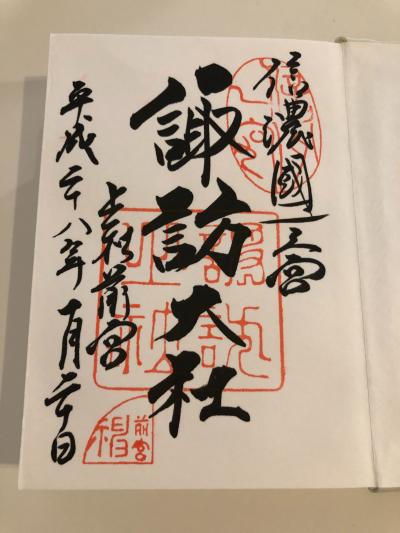 信濃國一之宮
諏訪大社
上社前宮
平成二十八年一月二十日
諏訪大社
前宮